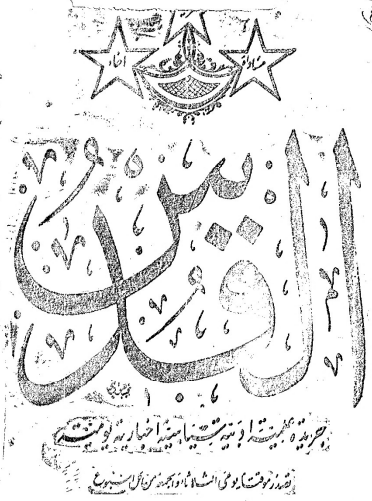 اخاء مساواة
القدس
جريدة علمية ادبية سياسية اخبارية يومية
تصدر موقتا يومي الثلاثاء والجمعة من كل اسبوع